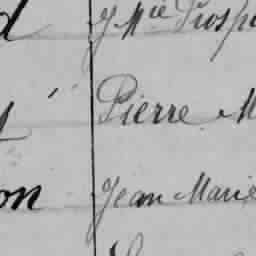 d J Mie Prosp
Pierre M
on Jean Marie